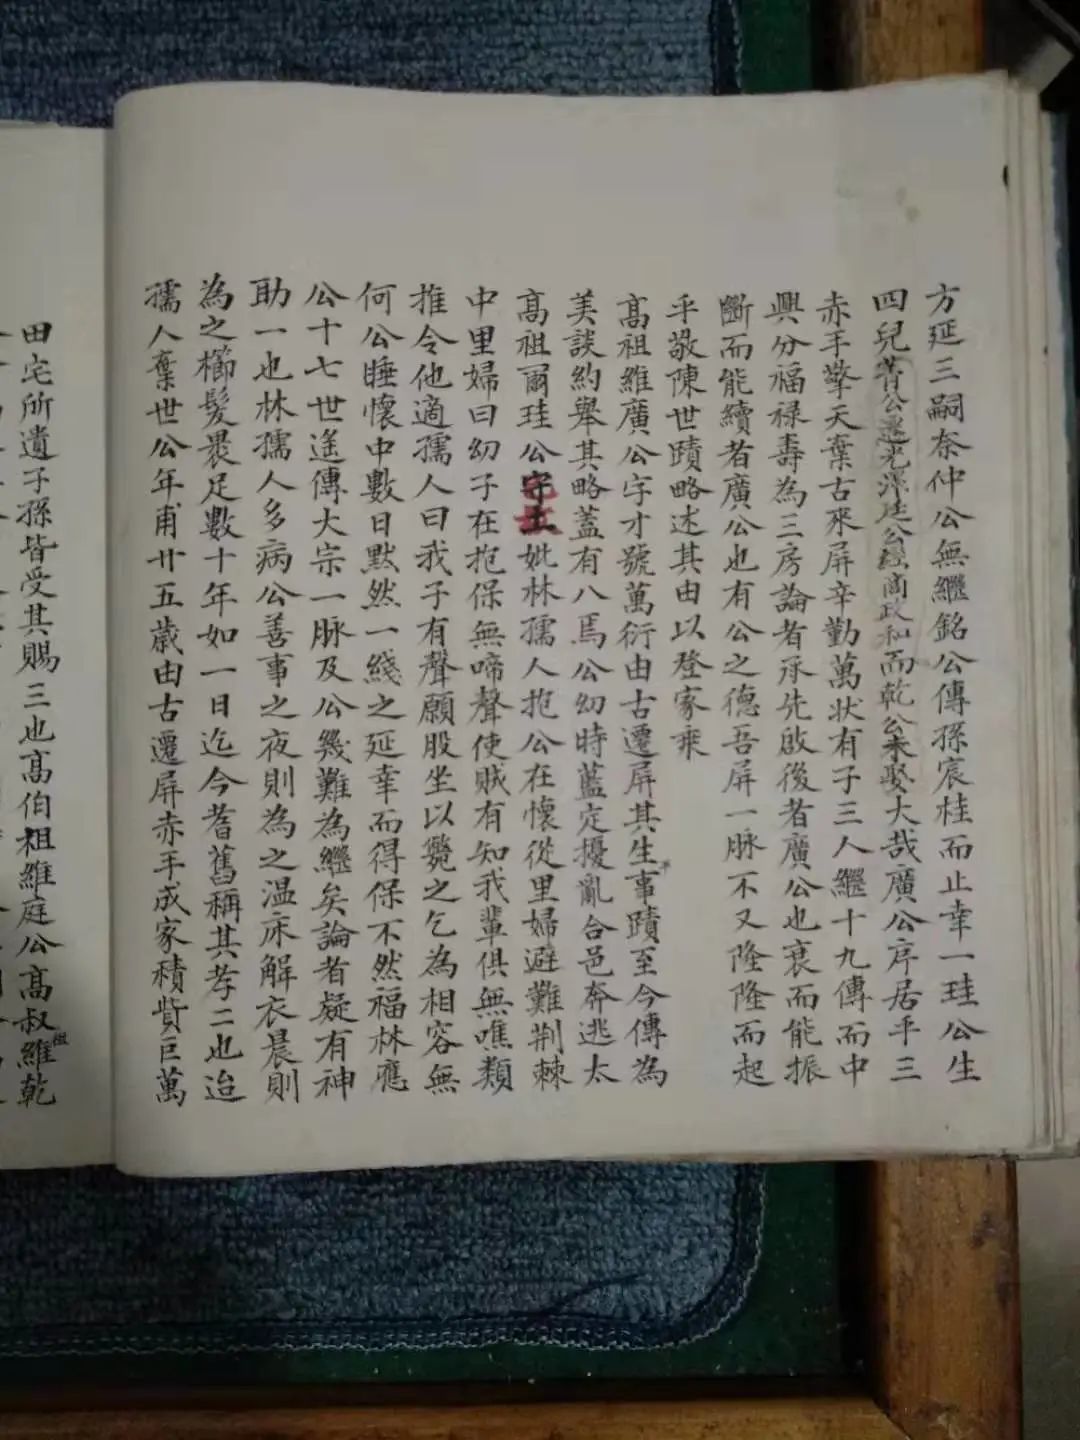 方延三嗣奈仲公無繼銘公傳孫宸桂而止幸一珪公生
四兒菁公遷光澤廷公經商政和而乾公未娶大哉廣公序居乎三
赤手擎天棄古來屏辛勤萬状有子三人繼十九傳而中
興分福禄壽為三房論者承先啟後者廣公也衰而能振
斷而能續者廣公也有公之德吾屏一脉不又隆隆而起
乎敬陳世蹟略述其由以登家乘
高祖維廣公字才號萬衍由古遷屏其生事蹟至今傳為
美談約舉其略蓋有八焉公幼時藍定擾亂合邑奔逃太
高祖爾珪公妣林孺人抱公在懷從里婦避難荆棘
中里婦曰幼子在抱保無啼聲使贼有知我輩俱無噍類
推令他適孺人曰我子有聲願股坐以斃之乞為相容無
何公睡懷中數日默然一綫之延幸而得保不然福林應
公十七世遙傳大宗一脉及公幾難為繼矣論者疑有神
助一也林孺人多病公善事之夜則為之温床解衣晨則
為之櫛髮裹足數十年如一日迄今耆舊稱其孝二也迨
孺人棄世公年甫廿五歲由古遷屏赤手成家積貲巨萬
田宅所遺子孫皆受其賜三也高伯祖維庭公高叔祖維乾